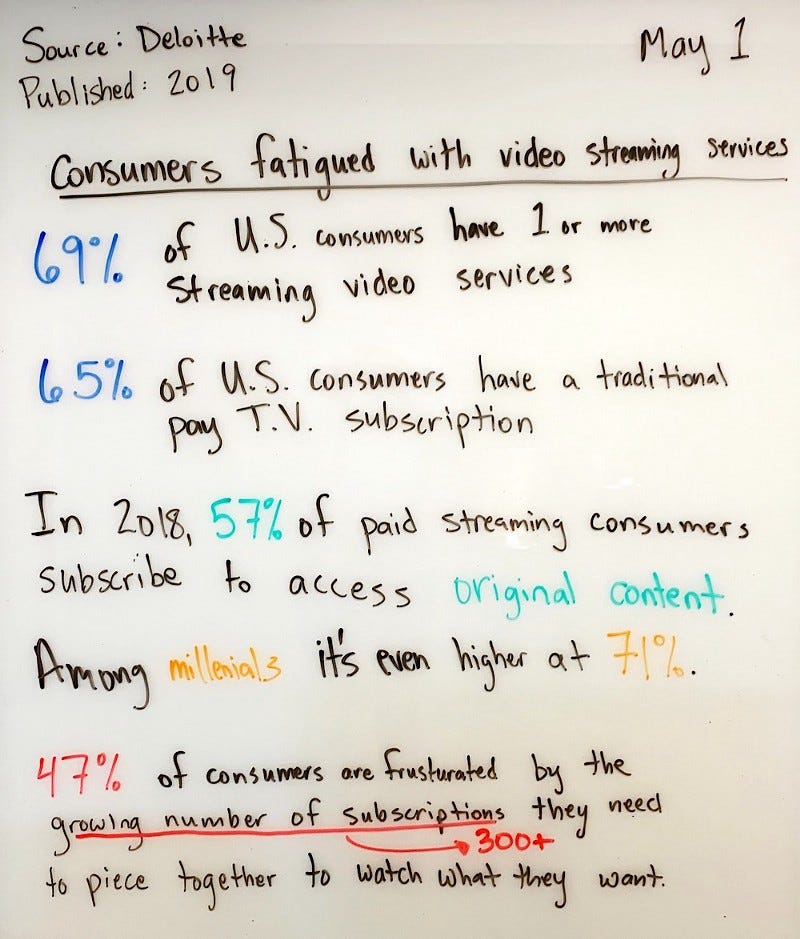 Source: Deloitte
May 1
Published: 2019
Consumers fatigued with video streaming services
69% of U.S. consumers have 1 or more
streaming video services
65% of U.S. consumers have a traditional
pay T.V. subscription
In 2018, 57% of paid streaming consumers
subscribe to access original content.
Among millenials it's even higher at 71%.
47% of consumers are frusturated by the
growing number of subscriptions they need
300+
to piece together to watch what they want.